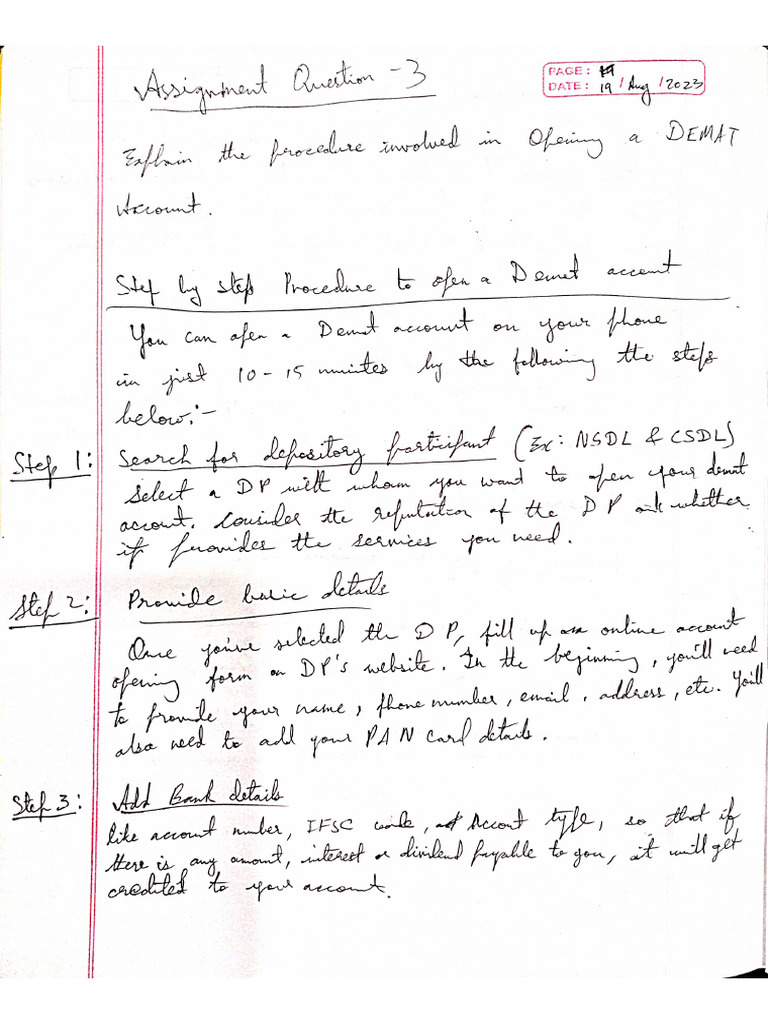 Assignment Question - 3
PAGE :
DATE : 19 / Aug / 2023
Explain the procedure involved in Opening a DEMAT
Account.
Step by step Procedure to open a Demat account
You can open a Demat account on your phone
in just 10-15 minutes by the following the steps
below:-
Step 1: Search for depository participant (Ex: NSDL & CSDL)
Select a DP with whom you want to open your demat
account. Consider the reputation of the DP and whether
it provides the services you need.
Step 2: Provide basic details
Once you've selected the DP, fill up an online account
opening form on DP's website. In the beginning, you'll need
to provide your name, phone number, email, address, etc. You'll
also need to add your PAN card details.
Step 3: Add Bank details
like account number, IFSC code, Account type, so that if
there is any amount, interest or dividend payable to you, it will get
credited to your account.